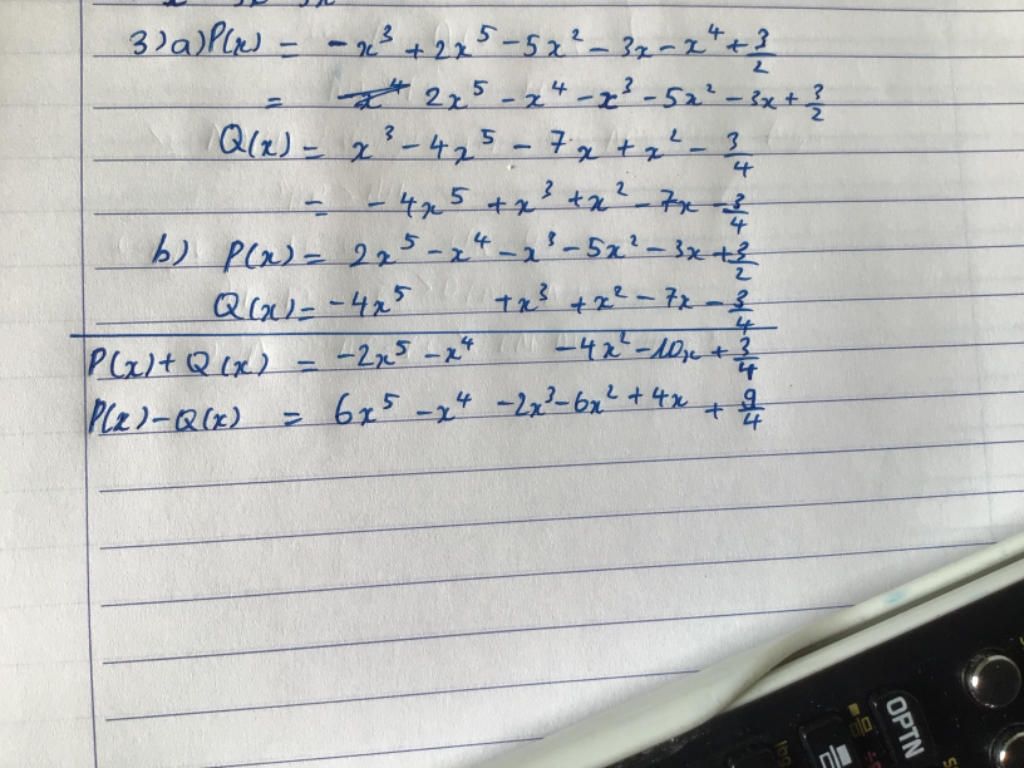 3) a) P(x) = -x³ + 2x⁵ - 5x² - 3x - x⁴ + 3/2
= 2x⁵ - x⁴ - x³ - 5x² - 3x + 3/2
Q(x) = x³ - 4x⁵ - 7x + x² - 3/4
= -4x⁵ + x³ + x² - 7x - 3/4
b) P(x) = 2x⁵ - x⁴ - x³ - 5x² - 3x + 3/2
Q(x) = -4x⁵ + x³ + x² - 7x - 3/4
P(x) + Q(x) = -2x⁵ - x⁴ - 4x² - 10x + 3/4
P(x) - Q(x) = 6x⁵ - x⁴ - 2x³ - 6x² + 4x + 9/4
OPTN